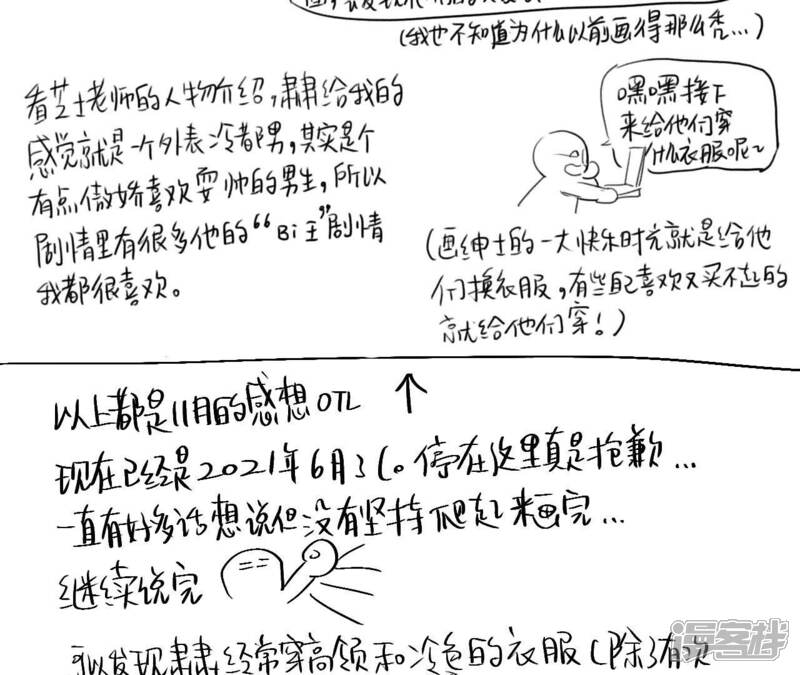 (我也不知道为什么以前画得那么秃...)
看芝士老师的人物介绍,肃给我的
感觉就是一个外表冷都男,其实是个
有点傲娇喜欢耍帅的男生,所以
剧情里有很多他的“Bi王”剧情
我都很喜欢。
嘿嘿接下
来给他们穿
什么衣服呢~
(画绅士的一大快乐时光就是给他
们换衣服,有些自己喜欢又买不起的
就给他们穿!)
以上都是11月的感想OTL ↑
现在已经是2021年6月了(。停在这里真是抱歉...
一直有好多话想说但没有坚持爬起来画完...
继续说完
可以发现肃经常穿高领和冷色的衣服(除了有次
漫客栈